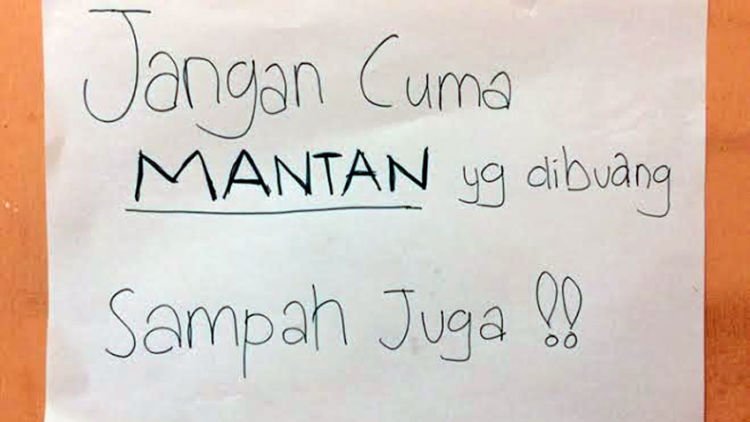 Jangan Cuma
MANTAN yg dibuang
Sampah Juga !!